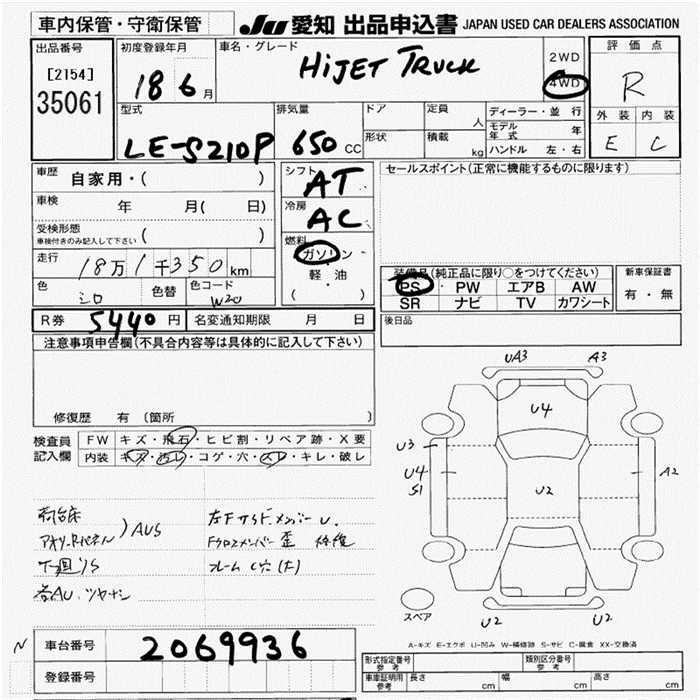 車内保管・守衛保管
JU 愛知 出品申込書 JAPAN USED CAR DEALERS ASSOCIATION
出品番号
[2154]
35061
初度登録年月
18 6月
車名・グレード
HIJET TRUCK
2WD
4WD
評価点
R
外装 内装
E C
型式
LE-S210P
排気量
650 CC
ドア
形状
定員
人
積載
kg
ディーラー・並行
モデル年式 年
ハンドル 左・右
車歴 自家用・( )
車検 年 月( 日)
受検形態
車検付きのみ記入して下さい ( )
走行 18万1千350km
色 シロ
色替
色コード W20
シフト
AT
冷房
AC
燃料
ガソリン
・
軽・油
( )
セールスポイント(正常に機能するものに限ります)
装備品(純正品に限り○をつけてください)
PS・PW・エアB・AW
SR・ナビ・TV・カワシート
新車保証書
有・無
R券 5440円
名変通知期限 月 日
後日品
注意事項申告欄(不具合内容等は具体的に記入して下さい)
修復歴 有(箇所 )
検査員
記入欄
FW キズ・飛石・ヒビ割・リペア跡・X要
内装 キズ・汚レ・コゲ・穴・スレ・キレ・破レ
荷台床
AUS
下廻りS
各AU.ツヤナシ
メンバーU.
メンバー歪 修復
フレーム
UA3 A3
U4
U3
U4
S1
U2
A2
U2 U2
スペア
A-キズ E-エクボ U-凹み W-補修跡 S-サビ C-腐食 XX-交換済
N
車台番号 2069936
登録番号
形式指定番号
参考
類別区分番号
参考
車庫証明用
参考
長さ cm 幅 cm 高さ cm